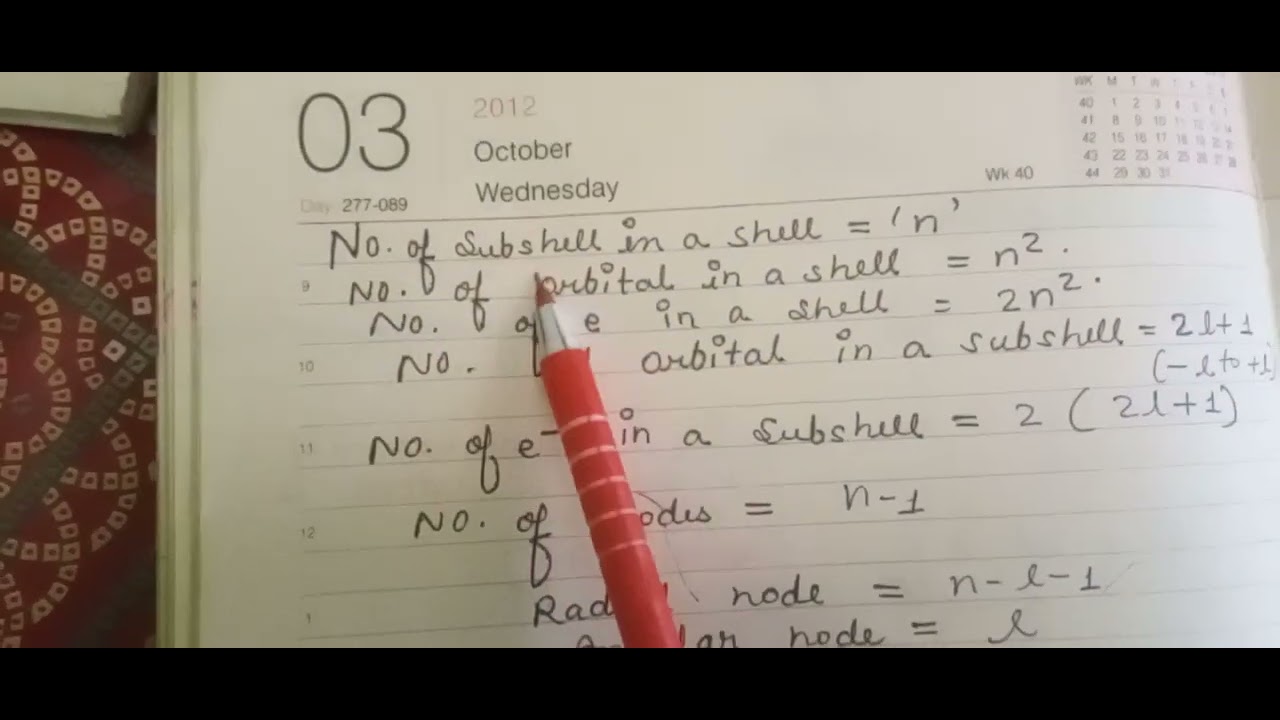 03
2012
October
Wednesday
Day 277-089
Wk 40
WK M T W
40 1 2 3 4 5 6
41 8 9 10 11 12 13 14
42 15 16 17 18 19 20 21
43 22 23 24 25 26 27 28
44 29 30 31
No. of Subshell in a shell = 'n'
9
No. of orbital in a shell = n².
No. of e in a shell = 2n².
10
No. orbital in a subshell = 2l+1
(-l to +l)
11
No. of e⁻ in a Subshell = 2 (2l+1)
12
No. of nodes = n-1
1
Radial node = n-l-1
node = l